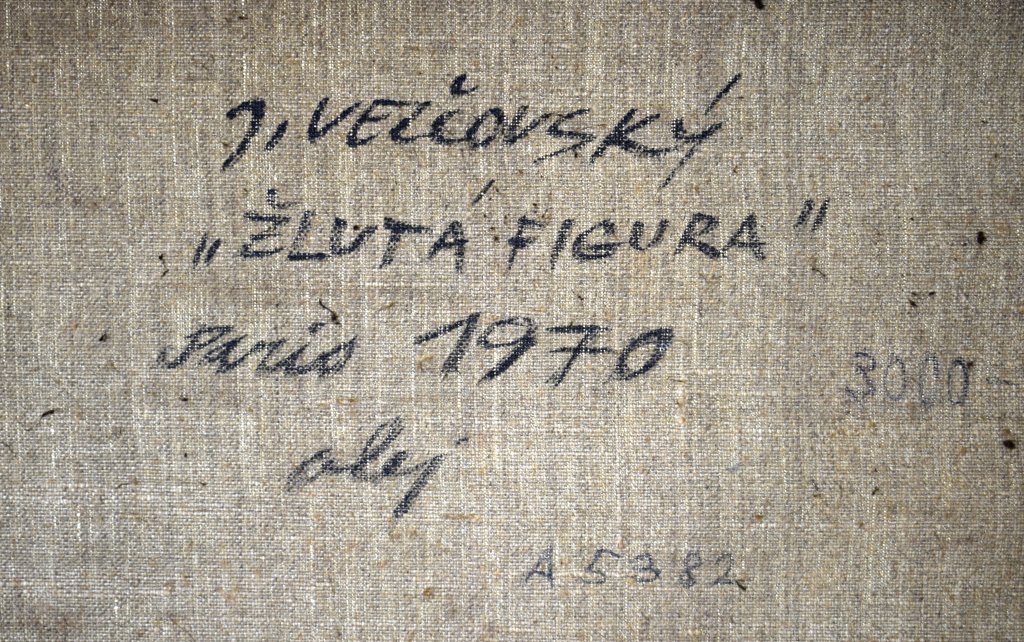 J. VELČOVSKÝ
„ŽLUTÁ FIGURA"
Paris 1970
3000-
olej
A 5382